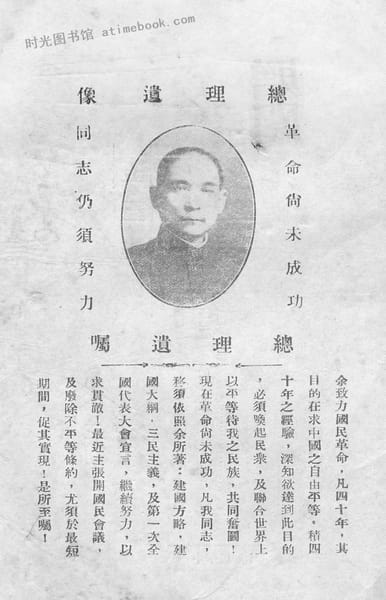 时光图书馆 atimebook.com
總理遺像
革命尙未成功
同志仍須努力
總理遺囑
余致力國民革命，凡四十年，其
目的在求中國之自由平等，積四
十年之經驗，深知欲達到此目的
，必須喚起民衆，及聯合世界上
以平等待我之民族，共同奮鬭！
現在革命尙未成功，凡我同志，
務須依照余所著：建國方略，建
國大綱，三民主義，及第一次全
國代表大會宣言，繼續努力，以
求貫徹！最近主張開國民會議，
及廢除不平等條約，尤須於最短
期間，促其實現！是所至囑！